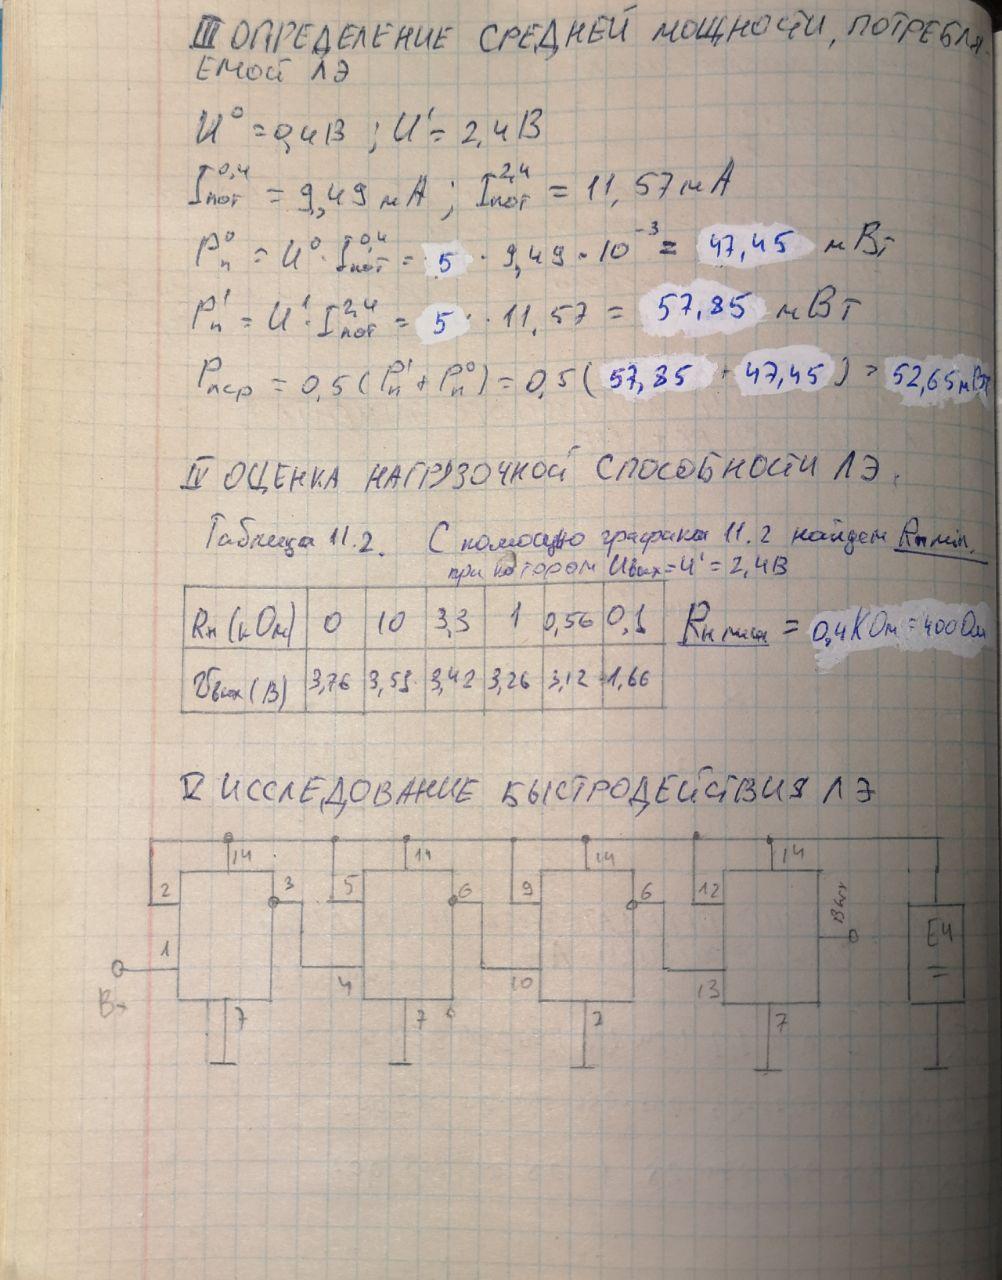 III ОПРЕДЕЛЕНИЕ СРЕДНЕЙ МОЩНОСТИ, ПОТРЕБЛЯ-
ЕМОЙ ЛЭ
U⁰ = 0,4В ; U¹ = 2,4В
Iпот^0,4 = 9,49 мА ; Iпот^2,4 = 11,57 мА
Pп⁰ = U⁰ · Iпот^0,4 = 5 · 9,49 · 10⁻³ = 47,45 мВт
Pп¹ = U¹ · Iпот^2,4 = 5 · 11,57 = 57,85 мВт
Pпср = 0,5 (Pп¹ + Pп⁰) = 0,5 (57,85 + 47,45) = 52,65 мВт
IV ОЦЕНКА НАГРУЗОЧНОЙ СПОСОБНОСТИ ЛЭ.
Таблица 11.2. С помощью графика 11.2 найдем Rн min,
при котором Uвых = U¹ = 2,4В
Rн (кОм) 0 10 3,3 1 0,56 0,1
Uвых (В) 3,76 3,53 3,42 3,26 3,12 1,66
Rн мин = 0,4 КОм = 400 Ом
V ИССЛЕДОВАНИЕ БЫСТРОДЕЙСТВИЯ ЛЭ
14 14 14 14
2 3 5 6 9 6 12 Вых E4
1 4 10 13
Вх 7 7 7 7